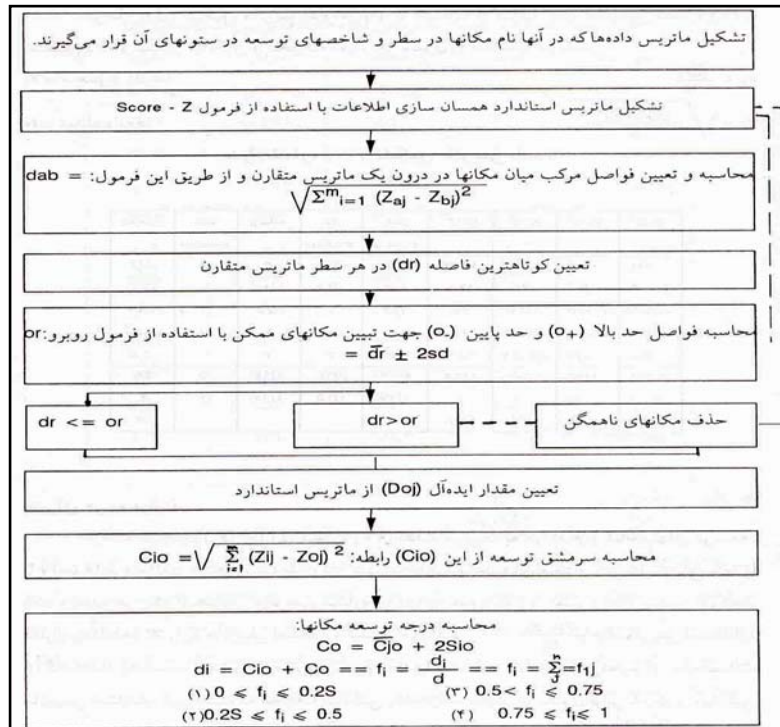 تشکیل ماتریس داده‌ها که در آنها نام مکانها در سطر و شاخصهای توسعه در ستونهای آن قرار می‌گیرند.
تشکیل ماتریس استاندارد همسان سازی اطلاعات با استفاده از فرمول Score - Z
محاسبه و تعیین فواصل مرکب میان مکانها در درون یک ماتریس متقارن و از طریق این فرمول: dab =
√Σᵐi=1 (Zaj - Zbj)²
تعیین کوتاهترین فاصله (dr) در هر سطر ماتریس متقارن
محاسبه فواصل حد بالا (o+) و حد پایین (o-) جهت تبیین مکانهای ممکن با استفاده از فرمول روبرو: or
= d̅r̅ ± 2sd
dr <= or
dr>or
حذف مکانهای ناهمگن
تعیین مقدار ایده‌آل (Doj) از ماتریس استاندارد
محاسبه سرمشق توسعه از این (Cio) رابطه: Cio = √Σⁿi=1 (Zij - Zoj)²
محاسبه درجه توسعه مکانها:
Co = C̅jo + 2Sio
di = Cio + Co == fi = di/d == fi = Σⁿj=f1j
(۱) 0 ⩽ fi ⩽ 0.2S (۳) 0.5< fi ⩽ 0.75
(۲)0.2S ⩽ fi ⩽ 0.5 (۴) 0.75 ⩽ fi⩽ 1